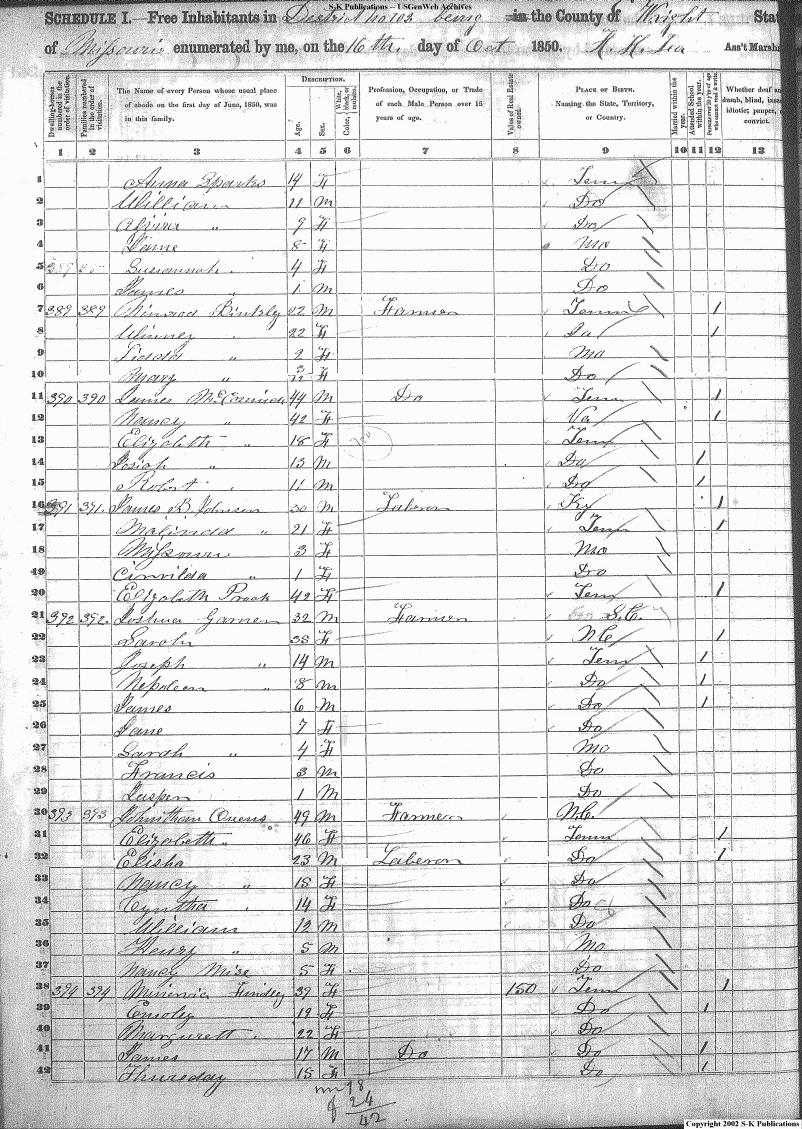 S-K Publications -- USGenWeb Archives
SCHEDULE I.—Free Inhabitants in District No 103 being in the County of Wright Stat
of Missouri enumerated by me, on the 16th day of Oct 1850. H. H. Lea Ass't Marsha
Dwelling-houses numbered in the order of visitation.
Families numbered in the order of visitation.
The Name of every Person whose usual place of abode on the first day of June, 1850, was in this family.
DESCRIPTION.
Age.
Sex.
Color, { White, black, or mulatto.
Profession, Occupation, or Trade of each Male Person over 15 years of age.
Value of Real Estate owned.
PLACE OF BIRTH. Naming the State, Territory, or Country.
Married within the year.
Attended School within the year.
Persons over 20 y'rs of age who cannot read & write.
Whether deaf an dumb, blind, insa idiotic, pauper, o convict.
1 2 3 4 5 6 7 8 9 10 11 12 13
1 Anna Sparks 14 F Tenn
2 William 11 M Do
3 " 9 F Do
4 Jane 8 F Mo
5 Susannah 4 F Do
6 James " 1 M Do
7 389 389 Binkly 22 M Farmer Tenn 1
8 22 F 1
9 " 2 F Mo
10 Mary " 3/12 F Do
11 390 390 James McCormick 44 M Do Tenn 1
12 Nancy " 42 F Va 1
13 Elizabeth " 18 F Tenn
14 Josiah " 13 M Do 1
15 Robert 11 M Do 1
16 391 391. James B. Johnson 30 M Laberor Ky 1
17 Malinda " 21 F Tenn 1
18 Missouri 3 F Mo
19 Cinvilda " 1 F Do
20 Elizabeth Prock 42 F Tenn 1
21 392 392. Joshua Garner 32 M Farmer S.C.
22 Sarah 38 F N.C 1
23 Joseph " 14 M Tenn 1
24 Nepoleon " 8 M Do 1
25 James 6 M Do 1
26 Jane 7 F Do
27 Sarah " 4 F Mo
28 Francis 3 M Do
29 Jasper 1 M Do
30 393 393 Johnithan Owens 49 M Farmer N.C.
31 Elizabeth " 46 F Tenn 1
32 Elisha 23 M Laberor Do 1
33 Nancy " 15 F Do
34 Cyntha 14 F Do
35 William 12 M Do
36 Henry " 5 M Mo
37 Nancy Mise 5 F Do
38 394 394 Findley 39 F 150 Tenn 1
39 19 F Do 1
40 Margurett 22 F Do
41 James 17 M Do Do 1
42 Thursday 15 F Do 1
m 18
f 24
42
Copyright 2002 S-K Publications